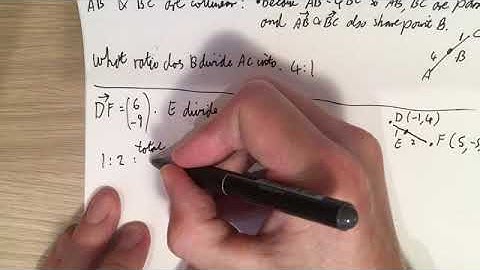 AB & BC are collinear: • because AB = 4BC so AB, BC are
and AB & BC also share point B.
1 C
4 B
A
What ratio does B divide AC into. 4:1
DF = (6 -9). E divide
D(-1,4)
1
E 2 F(5,-5
1:2: total